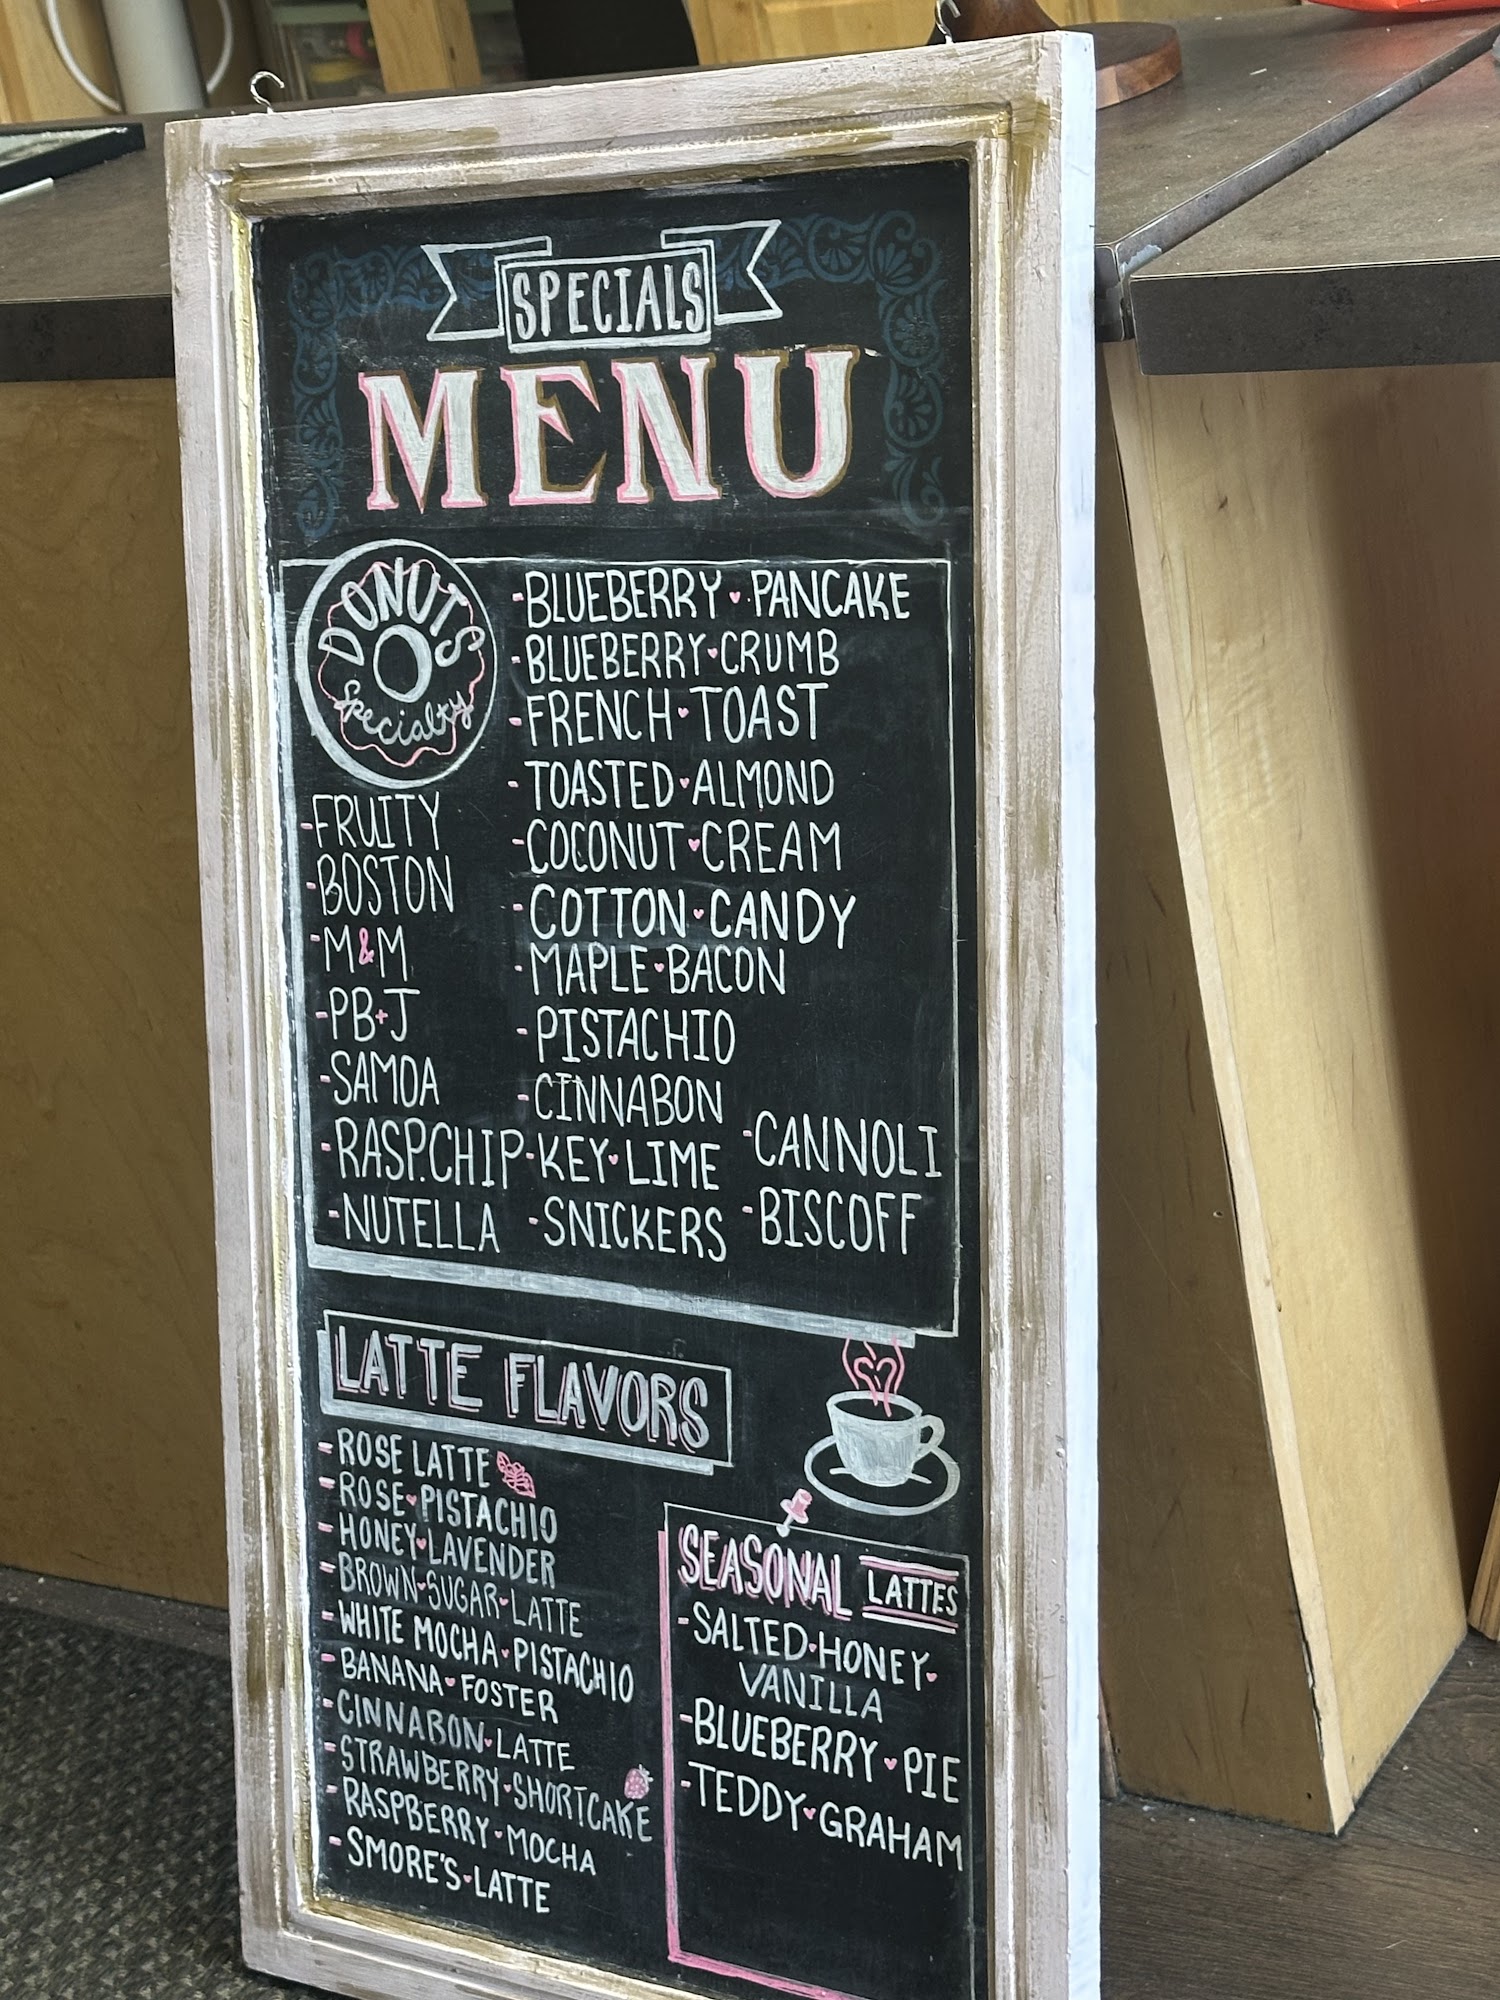 SPECIALS
MENU
DONUTS
Specialty
-FRUITY
-BOSTON
-M&M
-PB+J
-SAMOA
-RASP.CHIP
-NUTELLA
-BLUEBERRY PANCAKE
-BLUEBERRY CRUMB
-FRENCH TOAST
-TOASTED ALMOND
-COCONUT CREAM
-COTTON CANDY
-MAPLE BACON
-PISTACHIO
-CINNABON
-KEY LIME
-SNICKERS
-CANNOLI
-BISCOFF
LATTE FLAVORS
-ROSE LATTE
-ROSE PISTACHIO
-HONEY LAVENDER
-BROWN SUGAR LATTE
-WHITE MOCHA PISTACHIO
-BANANA FOSTER
-CINNABON LATTE
-STRAWBERRY SHORTCAKE
-RASPBERRY MOCHA
-SMORE'S LATTE
SEASONAL LATTES
-SALTED HONEY
VANILLA
-BLUEBERRY PIE
-TEDDY GRAHAM